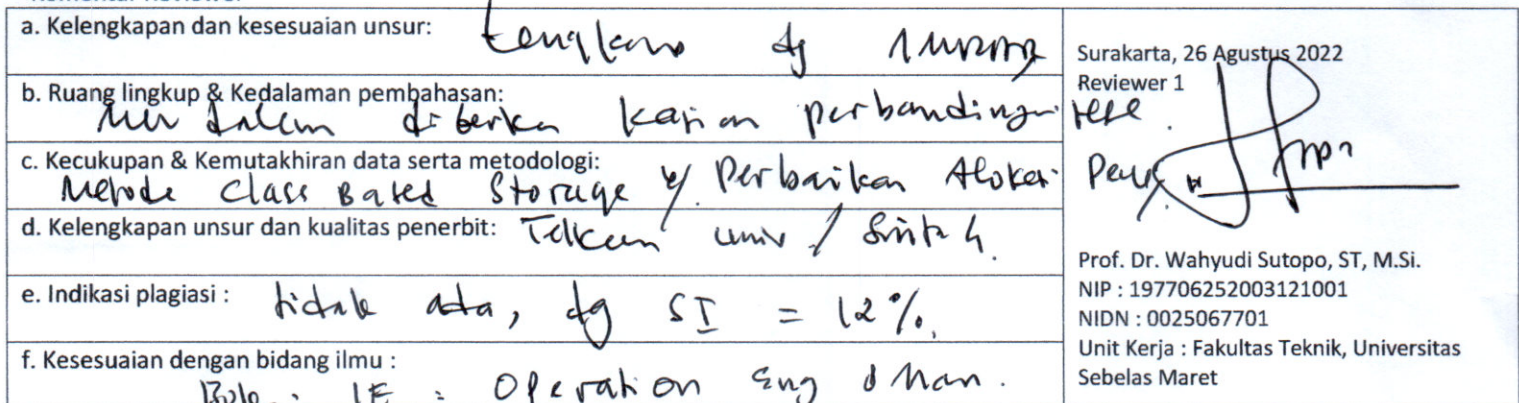 Komentar Reviewer
a. Kelengkapan dan kesesuaian unsur: Lengkap dg
b. Ruang lingkup & Kedalaman pembahasan:
diberikan kajian perbandingan
c. Kecukupan & Kemutakhiran data serta metodologi:
Metode Class Based Storage u/ Perbaikan Alokasi
d. Kelengkapan unsur dan kualitas penerbit: Telkom univ / Sinta 4.
e. Indikasi plagiasi : tidak ada, dg SI = 12%.
f. Kesesuaian dengan bidang ilmu :
IE : Operation Eng & Man.
Surakarta, 26 Agustus 2022
Reviewer 1
Prof. Dr. Wahyudi Sutopo, ST, M.Si.
NIP : 197706252003121001
NIDN : 0025067701
Unit Kerja : Fakultas Teknik, Universitas
Sebelas Maret